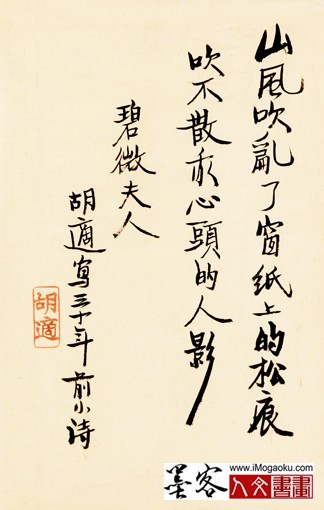 山風吹亂了窗纸上的松痕
吹不散我心頭的人影
碧微夫人
胡適寫三十年前小诗
胡適
www.iMogaoku.com
墨客
人文書畫